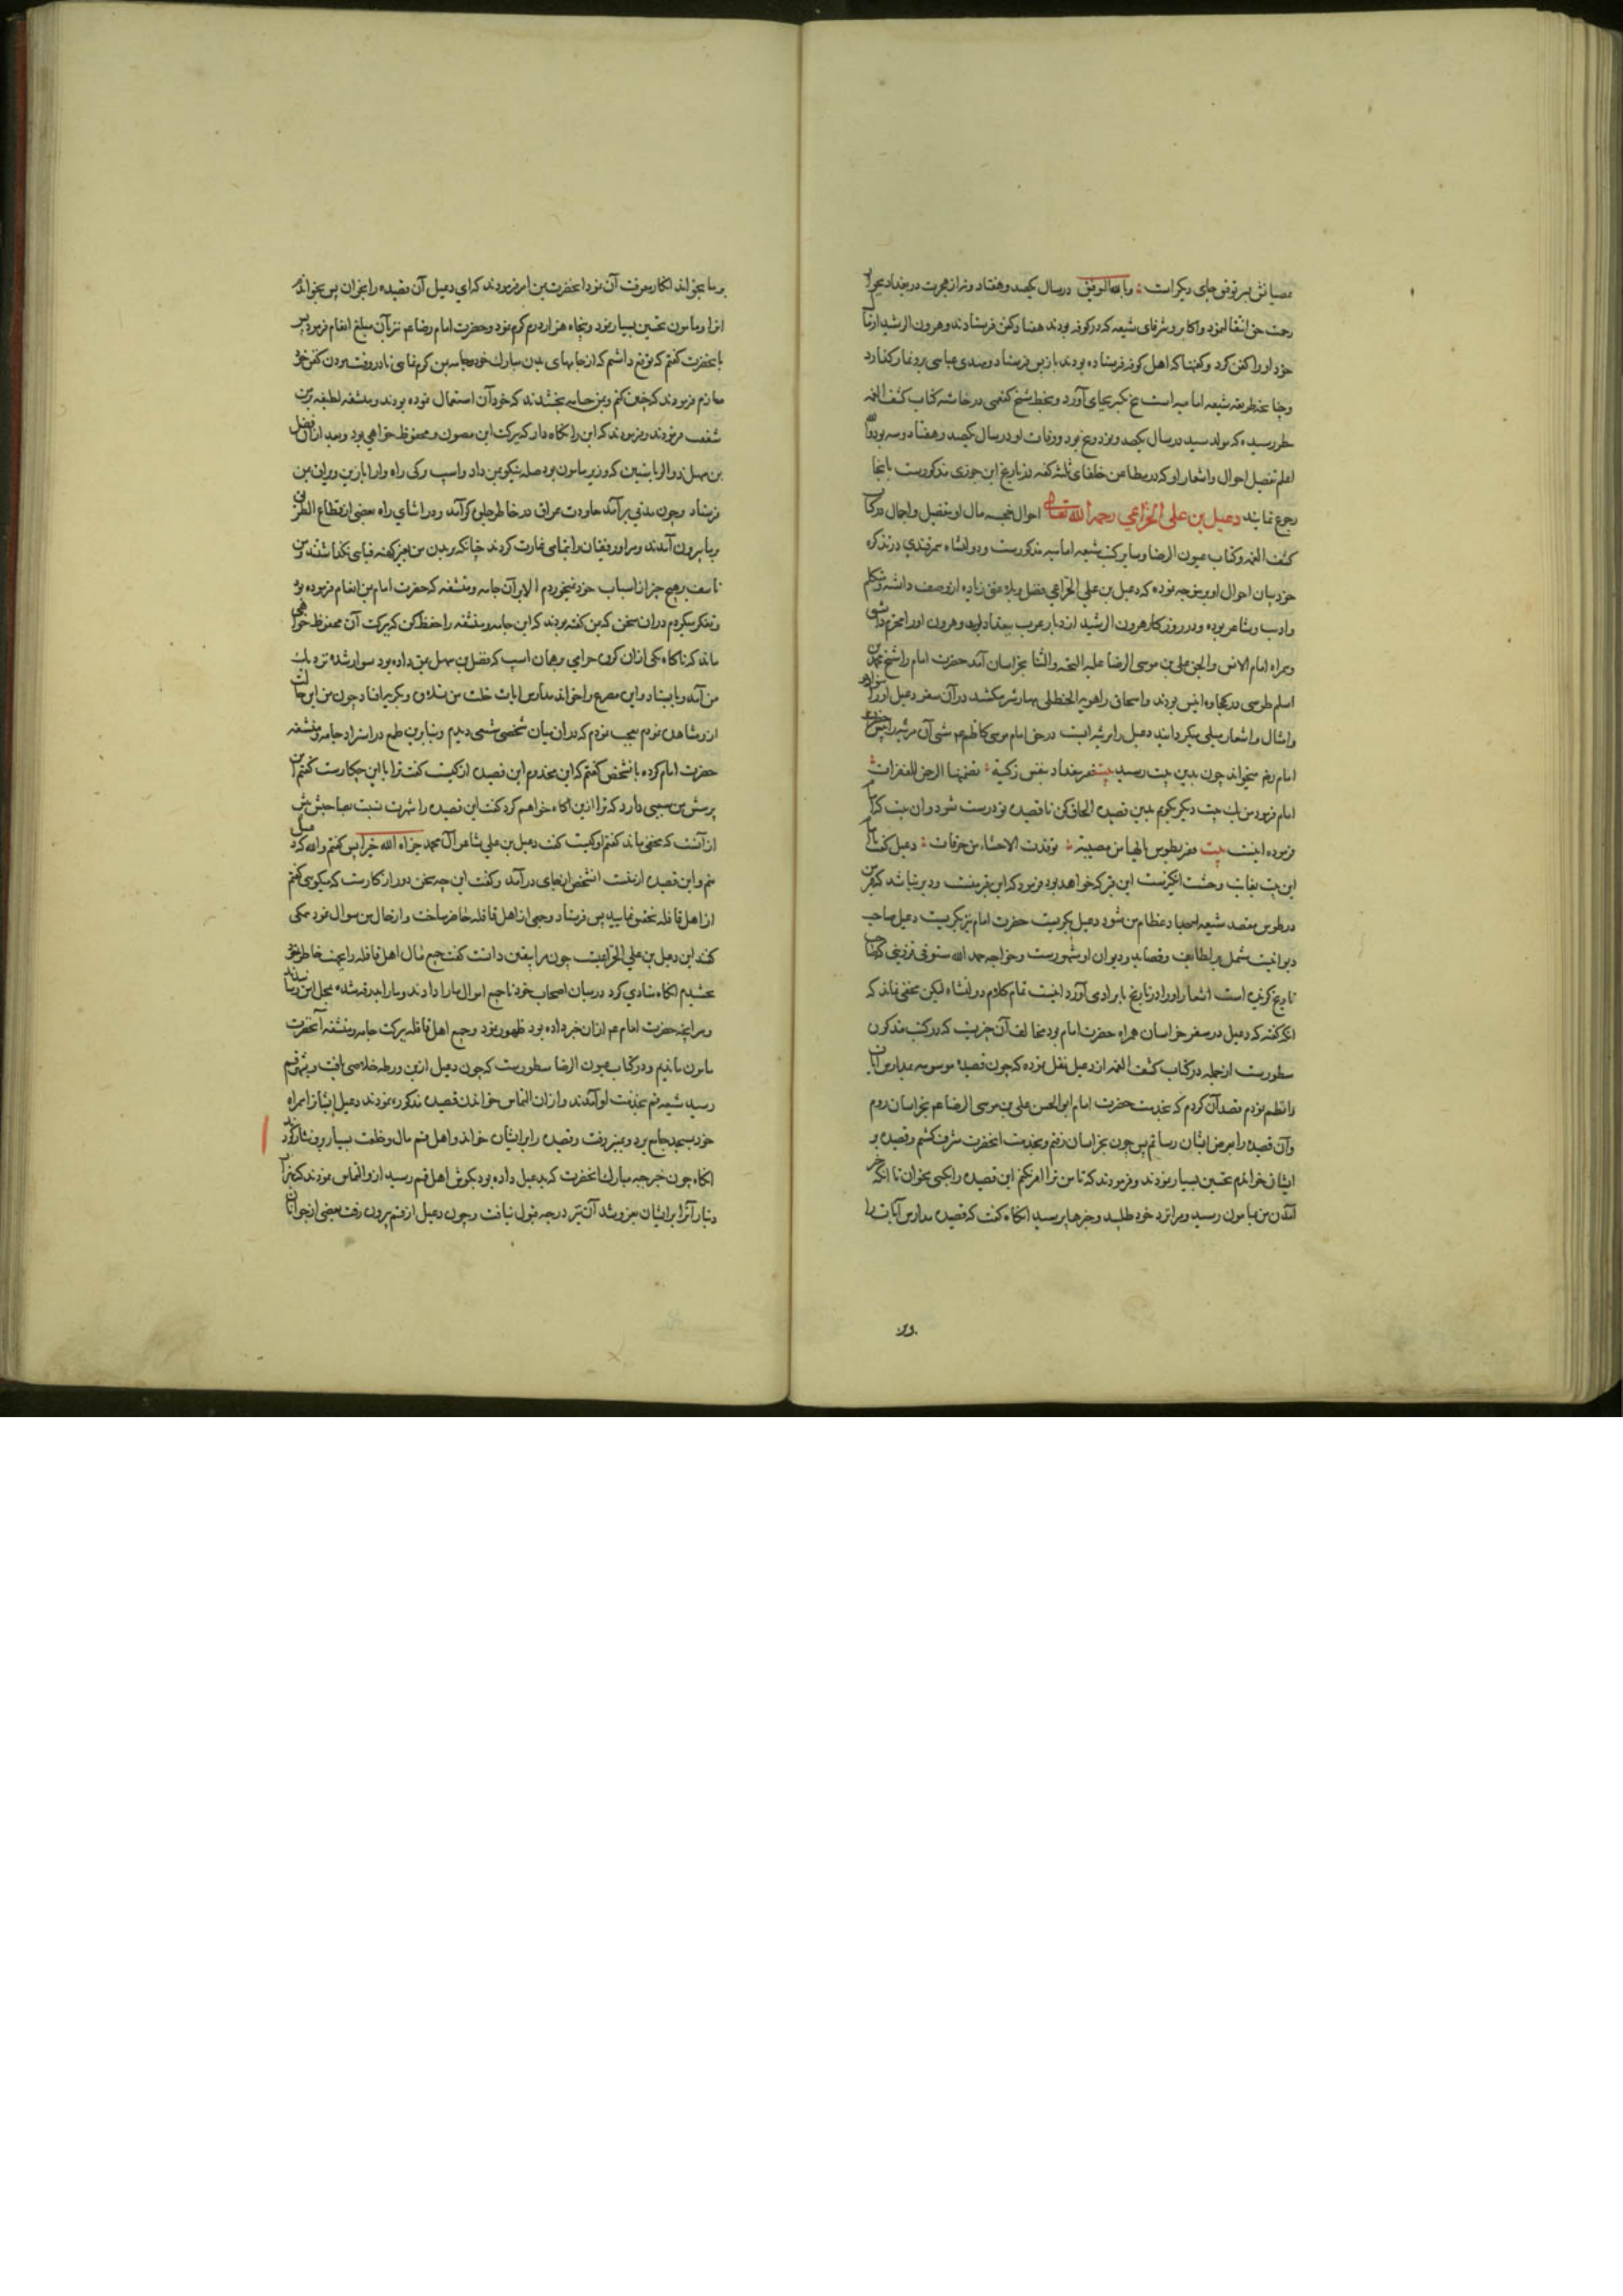 عصیانش بر توفی جای دیگر است وبالله التوفیق در سال یکصد وهفتاد و نه از هجرت در بغداد بجوار
رحمت حق انتقال نمود واکابر وشرفای شیعه که در کوفه بودند هفتاد کفن فرستادند وهرون الرشید از مال
خود او را کفن کرد وکفنها که اهل کوفه فرستاده بودند باز پس فرستاد ومهدی عباسی برو نماز کذارد
وچنانچه طریقه شیعه امامیه است پنج تکبیر بجای آورد وبخط شیخ کفعمی در حاشیه کتاب کشف الغمه
بنظر رسیده که مولد سید در سال یکصد و پنج بود ووفات او در سال یکصد وهفتاد وسه بود والله
اعلم تفصیل احوال واشعار او که در مطاعن خلفای ثلثه گفته در تاریخ ابن جوزی مذکورست بانجا
رجوع نمایند دعبل بن علی الخزاعی رحمه الله تعالی احوال خجسته مآل او بتفصیل واجمال در کتاب
کشف الغمه وکتاب عیون الرضا وسایر کتب شیعه امامیه مذکورست ودولتشاه سمرقندی در تذکره
خود بیان احوال او برین وجه نموده که دعبل بن علی الخزاعی فضل وبلاغتی زیاده از وصف داشته ومتکلم
وادیب وشاعر بوده ودر روزگار هرون الرشید از دیار عرب ببغداد آمد وهرون او را محترم داشتی
وهمراه امام الانس والجن علی بن موسی الرضا علیه التحیه والثنا بخراسان آمد حضرت امام را شیخ محمد بن
اسلم طوسی در کجاوه انیس بودند واسحاق راهویه الحنظلی مهار شتر میکشید در آن سفر دعبل اورا سوادها
وامثال واشعار بیلی میگردانید دعبل را مرثیه ایست در حق امام موسی کاظم ع شبی آن مرثیه را پیش حضرت
امام رض میخواند چون بدین بیت رسید بیت وقبر ببغداد لنفس زکیة تضمنها الرحمن للغفرات
امام فرمود من یک بیت دیگر بگویم بدین قصیده الحاق کن تا قصیده تو درست شود وآن بیت که امام
فرموده اینست بیت وقبر بطوس یالها من مصیبة توقدت الاحشاء من حرقات دعبل گفت یا امام
این بیت بغایت وحشت انگیزست این قبر که خواهد بود فرمود که این قبر منست ودیر نباشد که قبر من
در طوس مقصد شیعه احبا وعظام من شود دعبل بگریست حضرت امام نیز بگریست دعبل صاحب
دیوانیست مشتمل بر لطایف وقصاید ودیوان او مشهورست وخواجه حمد الله مستوفی قزوینی که صاحب
تاریخ گزیده است اشعار او را در تاریخ بابرادی آورد اینست تمام کلام دولتشاه لیکن مخفی نماند که
آنکه گفته که دعبل در سفر خراسان همراه حضرت امام بود مخالف آن چیزیست که در کتب مذکوره
مسطورست از جمله در کتاب کشف الغمه از دعبل نقل نموده که چون قصیده موسومه بمدارس آیات
را نظم نمودم قصد آن کردم که بخدمت حضرت امام ابو الحسن علی بن موسی الرضا عم بخراسان روم
وآن قصیده را بعرض ایشان رسانم پس چون بخراسان رفتم وبخدمت آنحضرت مشرف گشتم وقصیده بر
ایشان خواندم تحسین بسیار نمودند وفرمودند که تا من ترا امر نکنم این قصیده را بکسی مخوان تا آنکه خبر
آمدن من بمأمون رسید ومرا نزد خود طلبید وخبرها پرسید آنگاه گفت که قصیده مدارس آیات را
بر ما بخواند انکار معرفت آن نمودم آنحضرت بمن امر فرمودند که ای دعبل آن قصیده را بخوان پس بخواندم
آنرا ومامون تحسین بسیار نمود وپنجاه هزار درم کرم نمود وحضرت امام رضا عم نیز بآن مبلغ انعام فرمود پس
بآنحضرت گفتم که توقع داشتم که از جامهای بدن مبارک خود جامه بمن کرم نمای تا در وقت مردن کفن خود
سازم فرمودند که چنین کنم وبمن جامه بخشیدند که خود آن استعمال نموده بودند ومنشفه لطیفه نیز بمن
شفقت فرمودند وفرمودند که این را نگاه دار که ببرکت این مصون ومحفوظ خواهی بود وبعد از آن فضل
بن سهل ذو الریاستین که وزیر مامون بود صله نیکو بمن داد واسپ ترکی راه وار با زین ویراق بمن
فرستاد وچون مدتی برآمد معاودت عراق در خاطر جلوه گر آمد ودر اثنای راه بعضی از قطاع الطریق
بر ما بیرون آمدند ومرا ورفیقان را بتمامی غارت کردند چنانکه در بدن من بغیر کهنه قبای نگذاشتند ومن
تاسف بر هیچ چیز از اسباب خود نمیخوردم الا بر آن جامه ومنشفه که حضرت امام بمن انعام فرموده بود
وتفکر میکردم در آن سخن که بمن گفته بودند که این جامه ومنشفه را حفظ کن که ببرکت آن محفوظ خواهی
ماند که ناگاه یکی از آن گروه حرامی وهمان اسپ که فضل بن سهل بمن داده بود سوار شده نزدیک
من آمد وبایستاد واین مصرع را خواند مدارس آیات خلت من تلاوة وبگریه افتاد چون من این حالت
ازو مشاهده نمودم تعجب نمودم که در آن میان شخصی شیعی دیدم وبنابرین طمع در استرداد جامه ومنشفه
حضرت امام کرده بآن شخص گفتم که ای مخدوم این قصیده از کیست گفت ترا با این چکارست گفتم این
پرسش من سببی دارد که ترا ازین آگاه خواهم کرد گفت این قصیده را شهرت نسبت بصاحبش بیش
از آنست که مخفی ماند گفتم او کیست گفت دعبل بن علی شاعر آل محمد جزاه الله خیرا پس گفتم والله که دعبل
منم واین قصیده از منست آنشخص از جای درآمد وگفت این چه سخن دور از کارست که میگویی گفتم
از اهل قافله تحقیق نمایید پس فرستاد وجمعی از اهل قافله حاضر ساخت واز حال من سوال نمود همگی
گفتند این دعبل بن علی الخزاعیست چون مرا بیقین دانست گفت جمیع مال اهل قافله را بجهت خاطر تو
بخشیدم آنگاه منادی کرد در میان اصحاب خود تا جمیع اموال ما را دادند وما را بدرقه شده بمحل امن رسانیدند
وسر آنچه حضرت امام عم از آن خبر داده بود ظهور نمود وجمیع اهل قافله ببرکت جامه ومنشفه آنحضرت
مامون ماندیم ودر کتاب عیون الرضا مسطورست که چون دعبل ازین ورطه خلاصی یافت وبشهر قم
رسید شیعه قم بخدمت او آمدند وازان التماس خواندن قصیده مذکوره نمودند دعبل ایشان را همراه
خود بمسجد جامع برد وبمنبر رفت وقصیده را بر ایشان خواند واهل قم مال وخلعت بسیار برو نثار کردند
آنگاه چون خبر جبه مبارک آنحضرت که بدعبل داده بود بگوش اهل قم رسید ازو التماس نمودند که بهزار
دینار آنرا بر ایشان بفروشد آن نیز درجه قبول نیافت وچون دعبل از قم بیرون رفت بعضی از جوانان